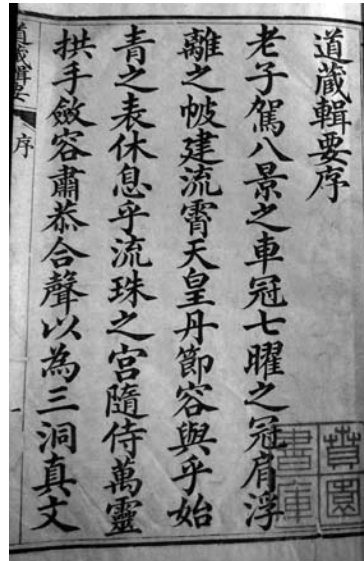 道藏輯要序
老子駕八景之車冠七曜之冠肩浮
離之帔建流霄天皇丹節容與乎始
青之表休息乎流珠之宮隨侍萬靈
拱手斂容肅恭合聲以為三洞真文
道藏輯要
序
一
賁園
書庫